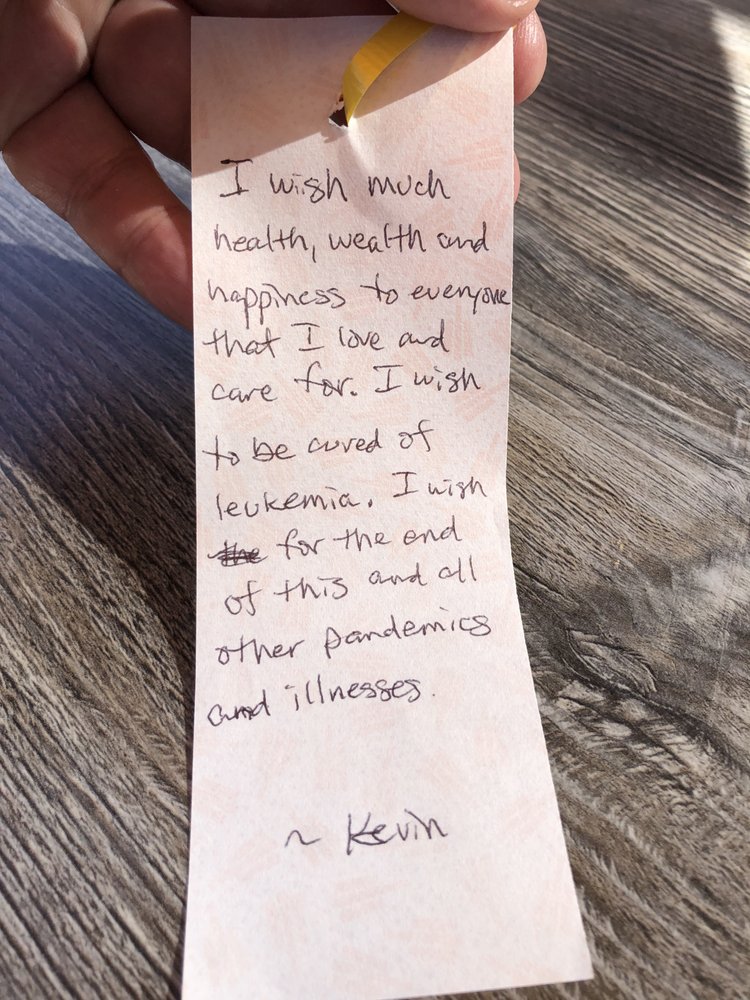 I wish much
health, wealth and
happiness to everyone
that I love and
care for. I wish
to be cured of
leukemia. I wish
the for the end
of this and all
other pandemics
and illnesses.
~ Kevin